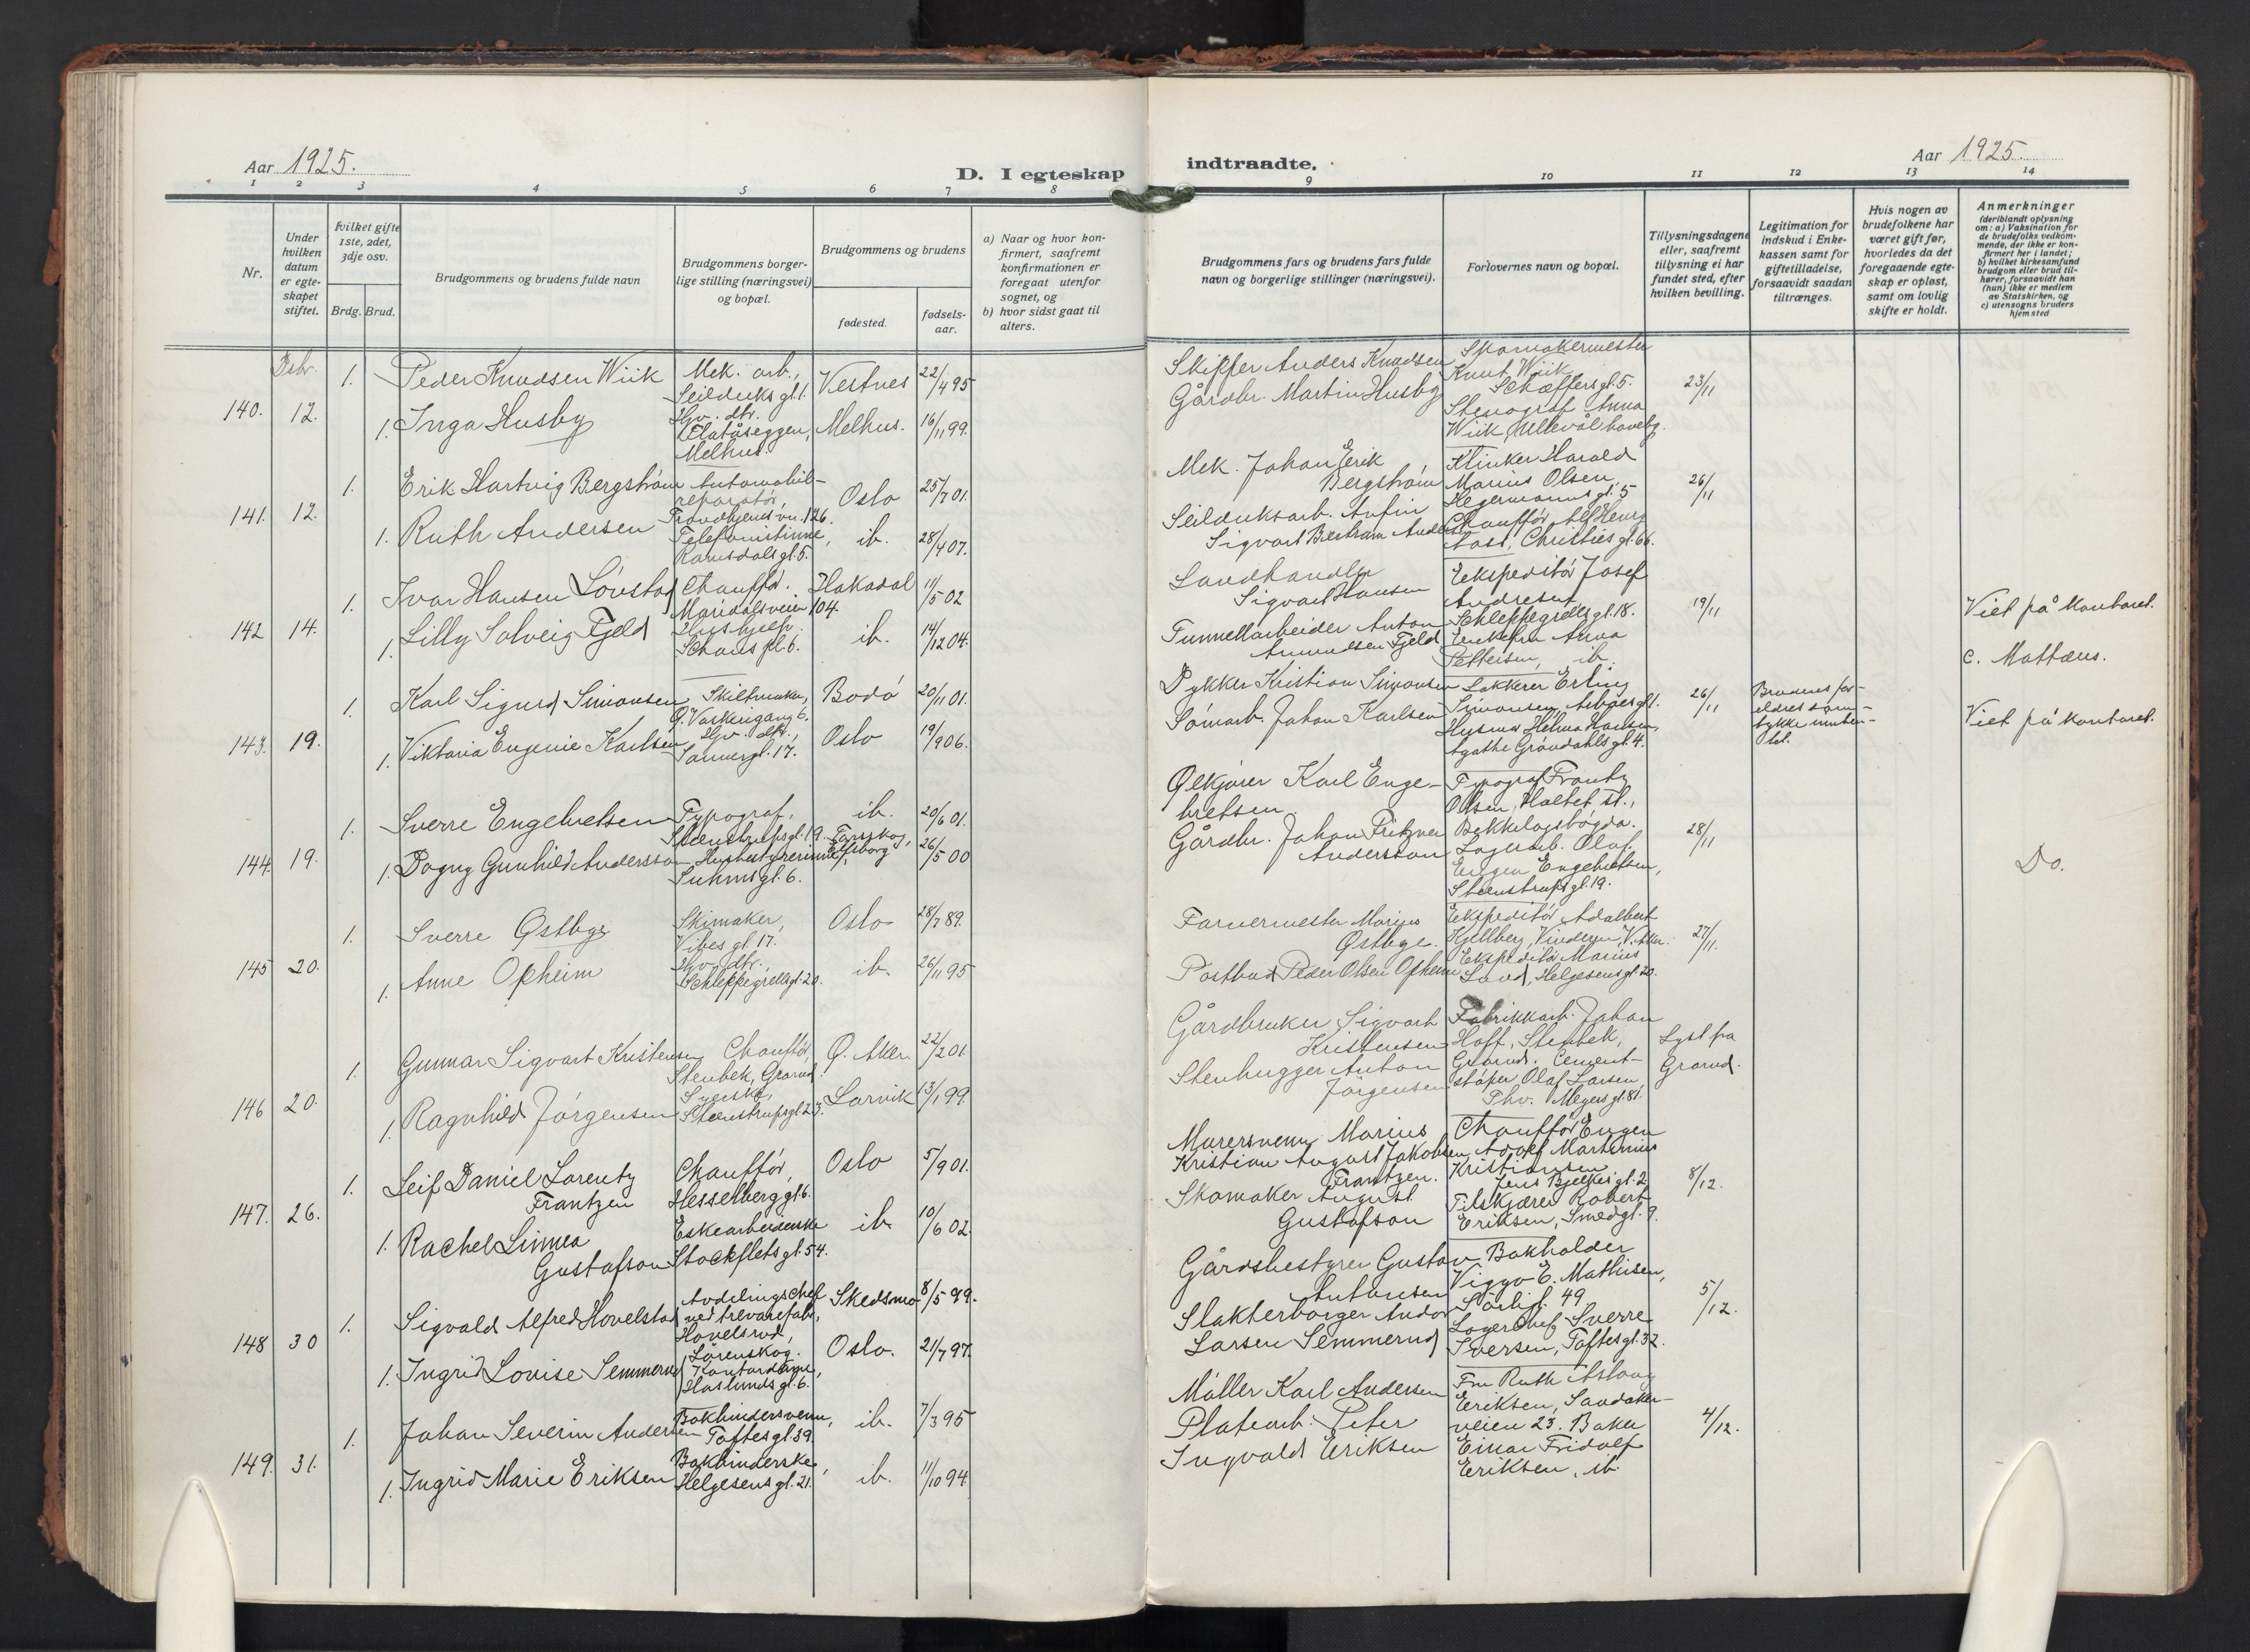 Aar 1925.
D. I egteskap
indtraadte.
Aar 1925.
1 2 3 4 5 6 7 8
9 10 11 12 13 14
Nr.
Under hvilken datum er egteskapet stiftet.
Hvilket gifte 1ste, 2det, 3dje osv.
Brdg. Brud.
Brudgommens og brudens fulde navn
Brudgommens borgerlige stilling (næringsvei) og bopæl.
Brudgommens og brudens
fødested.
fødselsaar.
a) Naar og hvor konfirmert, saafremt konfirmationen er foregaat utenfor sognet, og
b) hvor sidst gaat til alters.
Brudgommens fars og brudens fars fulde navn og borgerlige stillinger (næringsvei).
Forlovernes navn og bopæl.
Tillysningsdagene eller, saafremt tillysning ei har fundet sted, efter hvilken bevilling.
Legitimation for indskud i Enkekassen samt for giftetilladelse, forsaavidt saadan tiltrænges.
Hvis nogen av brudefolkene har været gift før, hvorledes da det foregaaende egteskap er opløst, samt om lovlig skifte er holdt.
Anmerkninger
(deriblandt oplysning om: a) Vaksination for de brudefolks vedkommende, der ikke er konfirmert her i landet; b) hvilket kirkesamfund brudgom eller brud tilhører, forsaavidt han (hun) ikke er medlem av Statskirken, og c) utensogns bruders hjemsted
Dsbr.
140. 12.
1. Peder Knudsen Wiik
Mek. arb., Seilduks gt. 1.
Vestnes 22/4 95
1. Inga Husby
Hjv. dtr. Flatåseggen, Melhus.
Melhus. 16/11 99.
Skipper Anders Knudsen
Gårdbr. Martin Husby
Skomakermester
Knut Wiik
Schæffers gt. 5.
Stenograf Anna
Wiik, Ullevål haveby.
23/11
141. 12.
1. Erik Hartvig Bergstrøm
Automobilreparatør, Trondhjems vn. 126.
Oslo 25/7 01.
1. Ruth Andersen
Telefonistinne, Ramsdals gt. 5.
ib. 28/4 07.
Mek. Johan Erik
Bergstrøm
Seilduksarb. Anfin
Sigvart Bertram Andersen
Klinker Harald
Marius Olsen,
Hegermanns gt. 5
Chauffør Alf Henry
Aass, Christies gt. 66.
26/11
142 14.
1. Ivar Hansen Løvstad
Chauffør. Maridalsveien 104.
Hakadal 11/5 02
1. Lilly Solveig Fjeld
Hushjelp. Schous pl. 6.
ib. 14/12 04.
Landhandler
Sigvart Hansen
Tunnellarbeider Anton
Amundsen Fjeld
Ekspeditør Josef
Andresen
Schleppegrells gt. 18.
Enkefru Anna
Pettersen, ib.
19/11
Viet på kontoret.
c. Mattæus.
143. 19.
1. Karl Sigurd Simonsen
Skiltmaker, Ø. Vaskerigang 6.
Bodø 20/11 01.
1. Viktoria Eugenie Karlsen
Hjv. dtr., Sannergt. 17.
Oslo 19/9 06.
Dykker Kristian Simonsen
Sømarb. Johan Karlsen
Lakkerer Erling
Simonsen, Asbjøs gt.
Husmor Helma Hansen,
Agathe Grøndahls gt. 4.
26/11
Brudens foreldres samtykke munten-
Viet på kontoret.
144. 19.
1. Sverre Engebretsen
Typograf, Steenstrups gt. 19.
ib. 20/6 01.
1. Dagny Gunhild Andersson
Husbestyrerinne, Suhms gt. 6.
Torrskog, Elfsborg 26/5 00
Ølkjører Karl Engebretsen
Gårdbr. Johan Fritzner
Andersson
Typograf Frantz
Olsen, Holtet st.,
Bekkelagshøgda.
Lagerarb. Olaf
Eugen Engebretsen,
Steenstrups gt. 19.
28/11
Do.
145 20.
1. Sverre Østbye
Skimaker, Vibes gt. 17.
Oslo 28/7 89.
1. Anne Opheim
Hjv. dtr. Schleppegrells gt. 20.
ib. 26/11 95
Farvermester Marius
Østbye.
Postbud Peder Olsen Opheim
Ekspeditør Adalbert
Kjellberg, Vinderen, V. Aker.
Ekspeditør Marius
Lund, Helgesens gt. 20.
27/11.
146 20.
1. Gunnar Sigvart Kristensen
Chauffør, Stenbek, Grorud
Ø. Aker. 22/2 01.
1. Ragnhild Jørgensen
Syerske, Steenstrups gt. 23.
Larvik 13/1 99.
Gårdbruker Sigvart
Kristensen
Stenhugger Anton
Jørgensen
Fabrikkarb. Johan
Hoff, Stenbek,
Grorud. Cementstøper Olaf Larsen,
Thv. Meyers gt. 81.
Lyst fra
Grorud.
147. 26.
1. Leif Daniel Lorentz
Frantzen
Chauffør, Hesselberg gt. 6.
Oslo 5/9 01.
1. Rachel Linnea
Gustafson
Eskearbeiderske Stockflets gt. 54.
ib. 10/6 02.
Murersvenn Marius
Kristian August Jakobsen
Frantzen.
Skomaker August
Gustafson
Chauffør Eugen
Adolf Martinius
Kristiansen
Jens Bjelkes gt. 2
Filskjærer Robert
Eriksen, Smedgt. 9.
8/12.
148 30
1. Sigvald Alfred Hovelstad
Avdelingschef ved trevarefabr., Hovelsrud, Lørenskog.
Skedsmo 8/5 99.
1. Ingrid Lovise Semmerud
Kontordame, Haslunds gt. 6.
Oslo. 21/7 97.
Gårdsbestyrer Gustav
Antonsen
Slakterborger Andor
Larsen Semmerud
Bokholder
Viggo E. Mathisen,
49
Lagerchef Sverre
Iversen, Toftes gt. 32.
5/12.
149. 31.
1. Johan Severin Andersen
Bokbindersvenn, Toftes gt. 39.
ib. 7/3 95
1. Ingrid Marie Eriksen
Bokbinderske, Helgesens gt. 21.
ib. 11/10 94
Møller Karl Andersen
Platearb. Peter
Ingvald Eriksen
Fru Ruth Aslaug
Eriksen, Sandakerveien 23. Baker
Einar Fridolf
Eriksen, ib.
4/12.